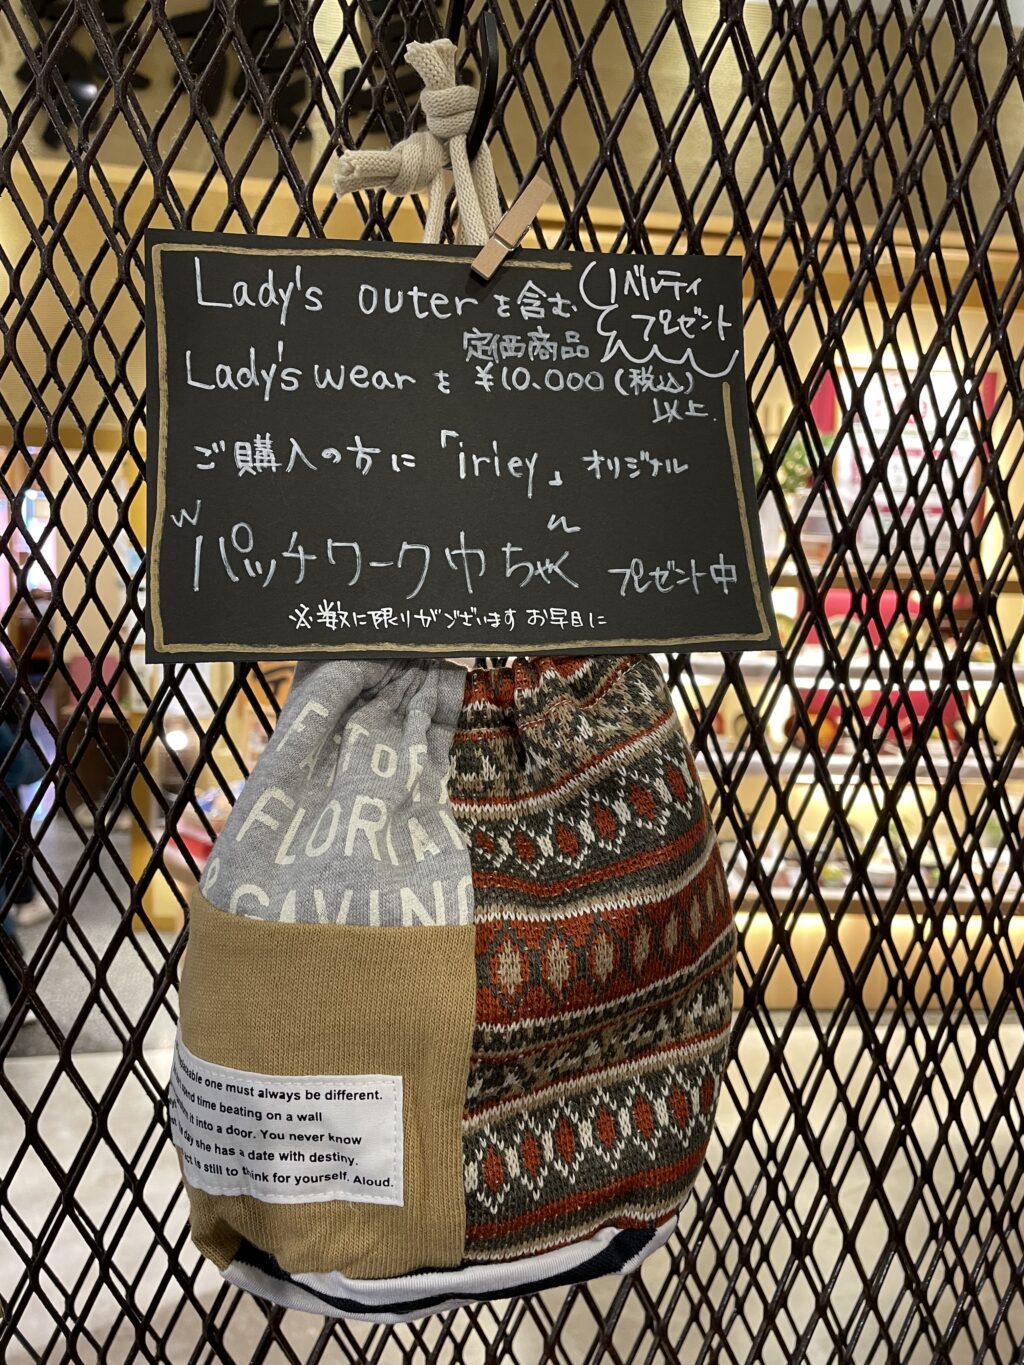 Lady's outer を含む
ノベルティ
プレゼント
定価商品
Lady's wear を ¥10.000 (税込)
以上
ご購入の方に「iriey」オリジナル
"パッチワーク巾ちゃく" プレゼント中
※数に限りがございます お早目に
FACTORY
FLORIAN
GAVING
one must always be different.
spend time beating on a wall
it into a door. You never know
day she has a date with destiny.
act is still to think for yourself. Aloud.